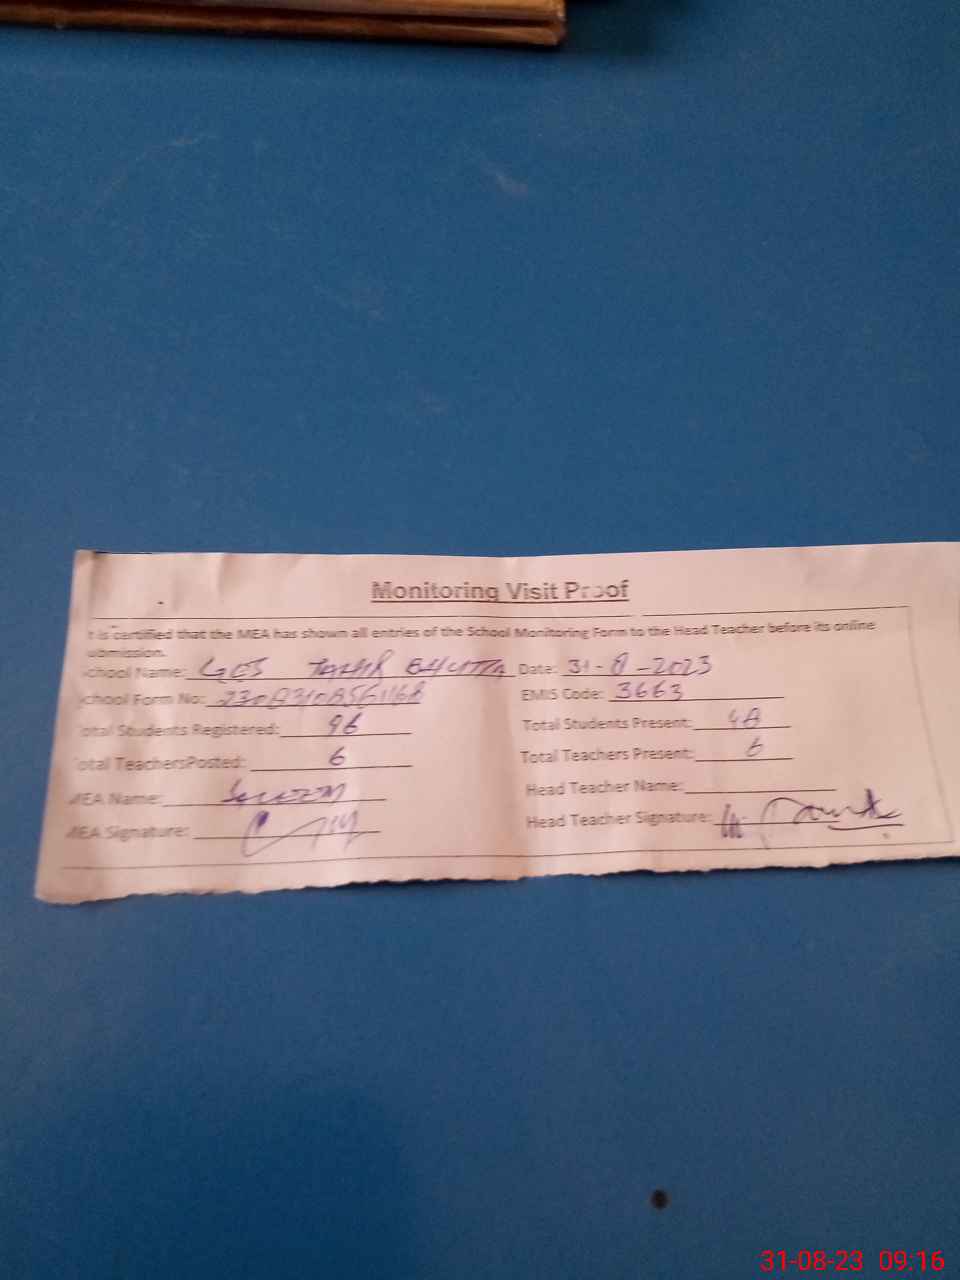 Monitoring Visit Proof
t is certified that the MEA has shown all entries of the School Monitoring Form to the Head Teacher before its online
ubmission.
chool Name: GES Date: 31-8-2023
chool Form No: EMIS Code: 3663
otal Students Registered: 96 Total Students Present: 48
otal TeachersPosted: 6 Total Teachers Present: 6
MEA Name: Head Teacher Name:
MEA Signature: Head Teacher Signature:
31-08-23 09:16